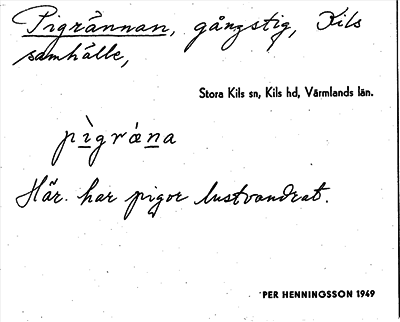 Pigrännan, gångstig, Kils
samhälle,
Stora Kils sn, Kils hd, Värmlands län.
pìgrána
Här har pigor lustvandrat.
PER HENNINGSSON 1949